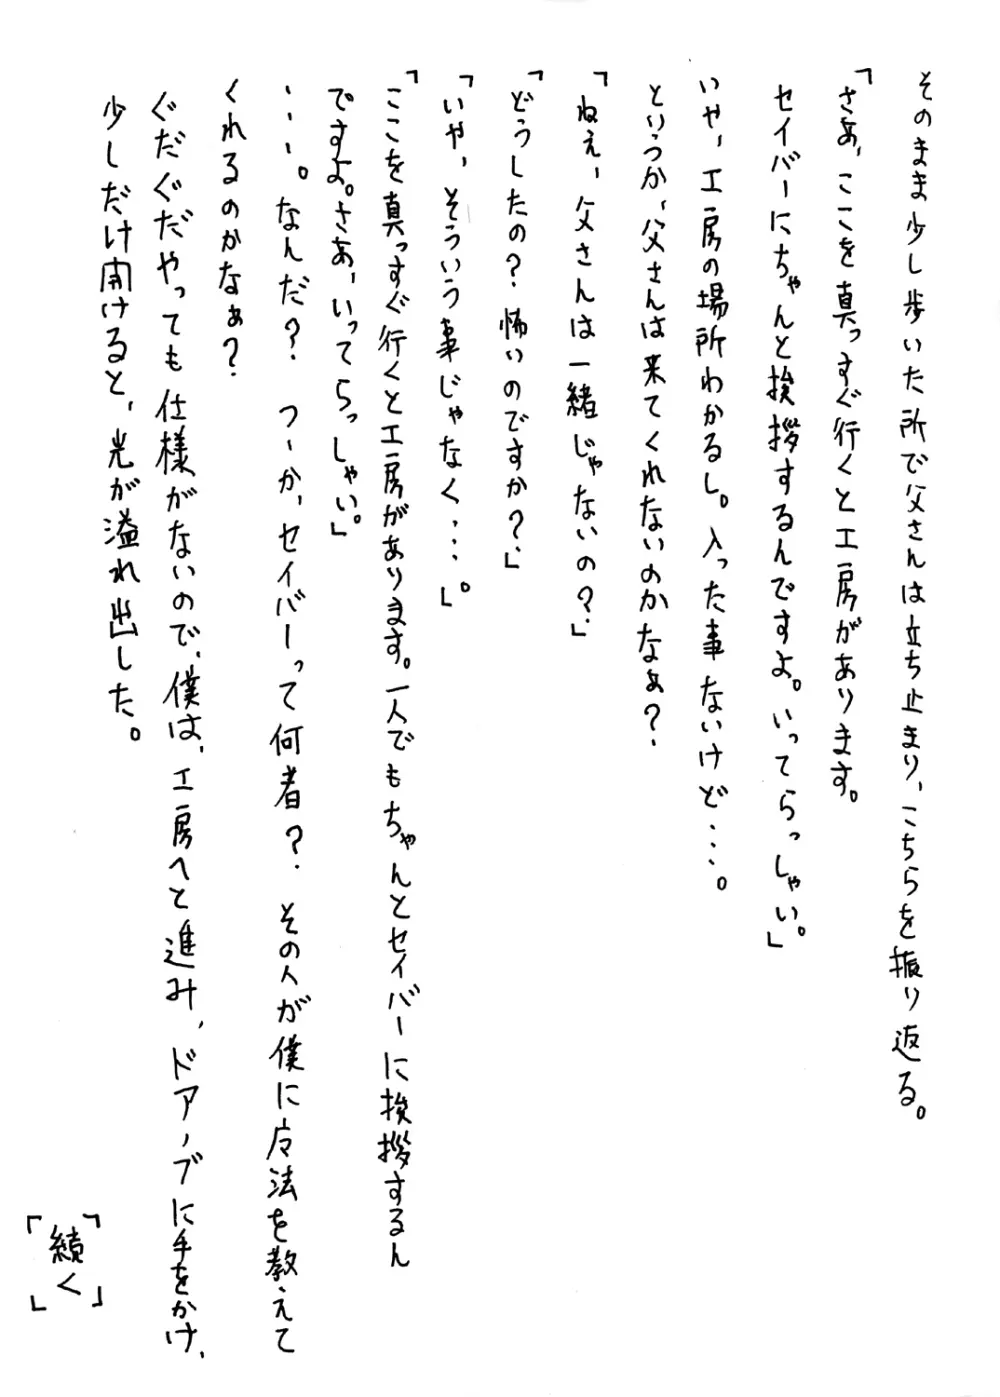 そのまま少し歩いた所で父さんは立ち止まり、こちらを振り返る。
「さあ、ここを真っすぐ行くと工房があります。
セイバーにちゃんと挨拶するんですよ。いってらっしゃい。」
いや、工房の場所わかるし。入った事ないけど・・・・。
というか、父さんは来てくれないのかなぁ?
「ねぇ、父さんは一緒じゃないの?」
「どうしたの?怖いのですか?」
「いや、そういう事じゃなく・・・・。」
「ここを真っすぐ行くと工房があります。一人でもちゃんとセイバーに挨拶するん
ですよ。さあ、いってらっしゃい。」
・・・・。なんだ? つーか、セイバーって何者? その人が僕に魔法を教えて
くれるのかなぁ?
ぐだぐだやっても仕様がないので、僕は、工房へと進み、ドアノブに手をかけ、
少しだけ開けると、光が溢れ出した。
「続く」